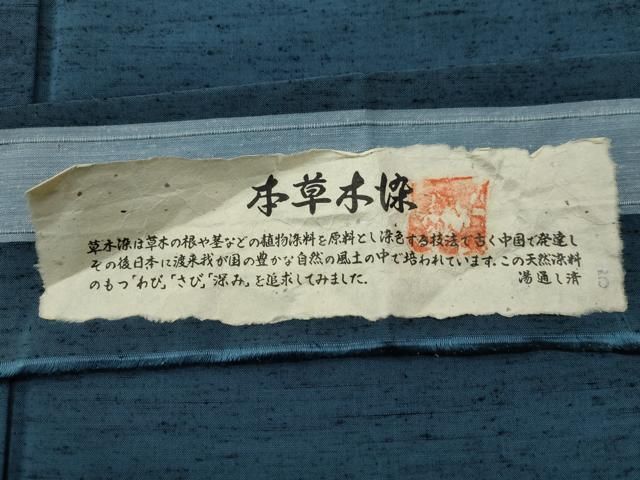 本草木染
草木染は草木の根や茎などの植物染料を原料とし染色する技法で古く中国で発達し
その後日本に渡来我が国の豊かな自然の風土の中で培われています。この天然染料
のもつ「わび」「さび」「深み」を追求してみました。
湯通し済